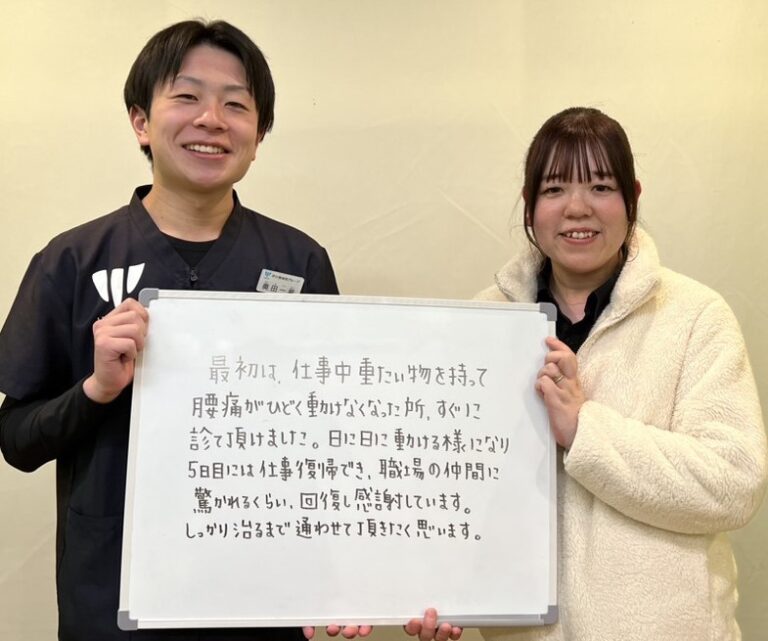 最初は、仕事中重たい物を持って
腰痛がひどく動けなくなった所、すぐに
診て頂けました。日に日に動ける様になり
5日目には仕事復帰でき、職場の仲間に
驚かれるくらい、回復し感謝しています。
しっかり治るまで通わせて頂きたく思います。